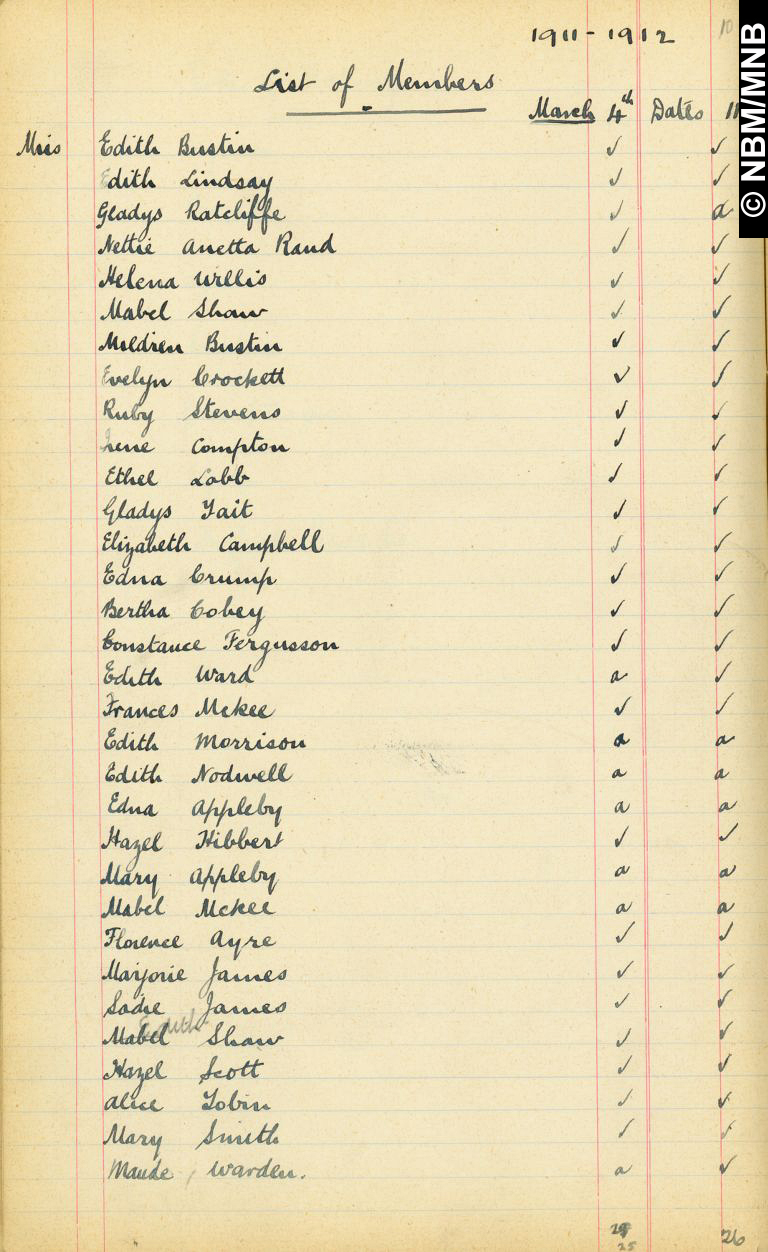 10
1911-1912
© NBM/MNB
List of Members
March 4th Dates 11
Miss Edith Bustin ✓ ✓
Edith Lindsay ✓ ✓
Gladys Ratcliffe ✓ a
Nettie Anetta Rand ✓ ✓
Helena Willis ✓ ✓
Mabel Shaw ✓ ✓
Mildren Bustin ✓ ✓
Evelyn Crockett ✓ ✓
Ruby Stevens ✓ ✓
Irene Compton ✓ ✓
Ethel Lobb ✓ ✓
Gladys Tait ✓ ✓
Elizabeth Campbell ✓ ✓
Edna Crump ✓ ✓
Bertha Cobey ✓ ✓
Constance Fergusson ✓ ✓
Edith Ward a ✓
Frances McKee ✓ ✓
Edith Morrison a a
Edith Nodwell a a
Edna Appleby a a
Hazel Hibbert ✓ ✓
Mary Appleby a a
Mabel McKee a a
Florence Ayre ✓ ✓
Marjorie James ✓ ✓
Sadie James ✓ ✓
Edith
Mabel Shaw ✓ ✓
Hazel Scott ✓ ✓
Alice Tobin ✓ ✓
Mary Smith ✓ ✓
Maude Warden. a ✓
25 26